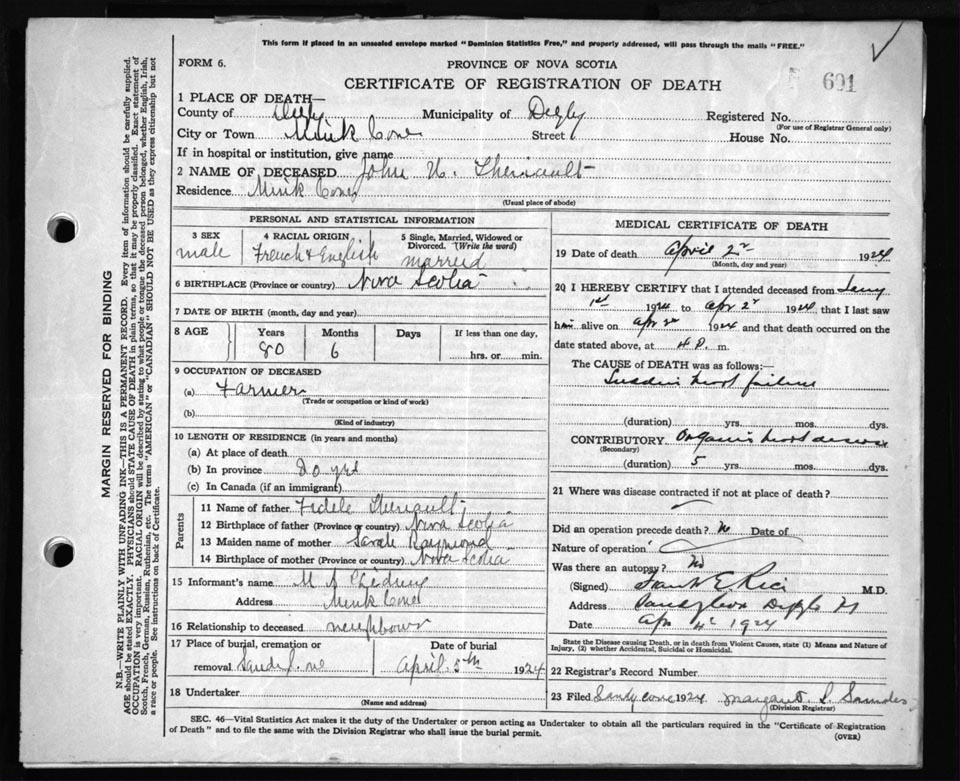 This form if placed in an unsealed envelope marked "Dominion Statistics Free," and properly addressed, will pass through the mails "FREE."
FORM 6.
PROVINCE OF NOVA SCOTIA
691
CERTIFICATE OF REGISTRATION OF DEATH
1 PLACE OF DEATH—
County of Digby Municipality of Digby Registered No.
(For use of Registrar General only)
City or Town Mink Cove Street House No.
If in hospital or institution, give name
2 NAME OF DECEASED John Theriault
Residence Mink Cove
(Usual place of abode)
PERSONAL AND STATISTICAL INFORMATION
3 SEX 4 RACIAL ORIGIN 5 Single, Married, Widowed or Divorced. (Write the word)
male French & English married
6 BIRTHPLACE (Province or country) Nova Scotia
7 DATE OF BIRTH (month, day and year)
8 AGE Years Months Days If less than one day,
80 6 hrs. or min.
9 OCCUPATION OF DECEASED
(a) Farmer
(Trade or occupation or kind of work)
(b)
(Kind of industry)
10 LENGTH OF RESIDENCE (in years and months)
(a) At place of death
(b) In province 80 yrs
(c) In Canada (if an immigrant)
Parents
11 Name of father Fidele Theriault
12 Birthplace of father (Province or country) Nova Scotia
13 Maiden name of mother Sarah Raymond
14 Birthplace of mother (Province or country) Nova Scotia
15 Informant's name
Address Mink Cove
16 Relationship to deceased neighbour
17 Place of burial, cremation or Date of burial
removal April 5th 1924
18 Undertaker
(Name and address)
MEDICAL CERTIFICATE OF DEATH
19 Date of death April 2 1924
(Month, day and year)
20 I HEREBY CERTIFY that I attended deceased from
1st 1924 to Apr 2 1924 that I last saw
him alive on Apr 2 1924 and that death occurred on
date stated above, at 4 P. m.
The CAUSE of DEATH was as follows:—
Sudden heart failure
(duration) yrs. mos. dys.
CONTRIBUTORY Organic heart disease
(Secondary)
(duration) 5 yrs. mos. dys.
21 Where was disease contracted if not at place of death?
Did an operation precede death? No Date of
Nature of operation
Was there an autopsy? No
(Signed) Frank E. Rice M.D.
Address Digby
Date Apr 4 1924
State the Disease causing Death, or in death from Violent Causes, state (1) Means and Nature of Injury, (2) whether Accidental, Suicidal or Homicidal.
22 Registrar's Record Number
23 Filed Sandy Cove 1924 Margaret L. Saunders
(Division Registrar)
SEC. 46—Vital Statistics Act makes it the duty of the Undertaker or person acting as Undertaker to obtain all the particulars required in the "Certificate of Registration
of Death" and to file the same with the Division Registrar who shall issue the burial permit.
(OVER)
MARGIN RESERVED FOR BINDING
N.B.—WRITE PLAINLY WITH UNFADING INK—THIS IS A PERMANENT RECORD. Every item of information should be carefully supplied.
AGE should be stated EXACTLY. PHYSICIANS should STATE CAUSE OF DEATH in plain terms, so that it may be properly classified. Exact statement of
OCCUPATION is very important. RACIAL ORIGIN will be described by stating to what people or tongue the deceased person belonged, whether English, Irish,
Scotch, French, German, Russian, Ruthenian, etc. The terms "AMERICAN" or "CANADIAN" SHOULD NOT BE USED as they express citizenship but not
a race or people. See instructions on back of Certificate.